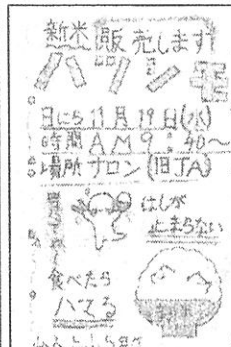 新米 販売します
ハツシモ
日にち 11月19日(水)
時間 AM9:40〜
場所 サロン(旧JA)
はしが
止まらない
食べたら
ハマる